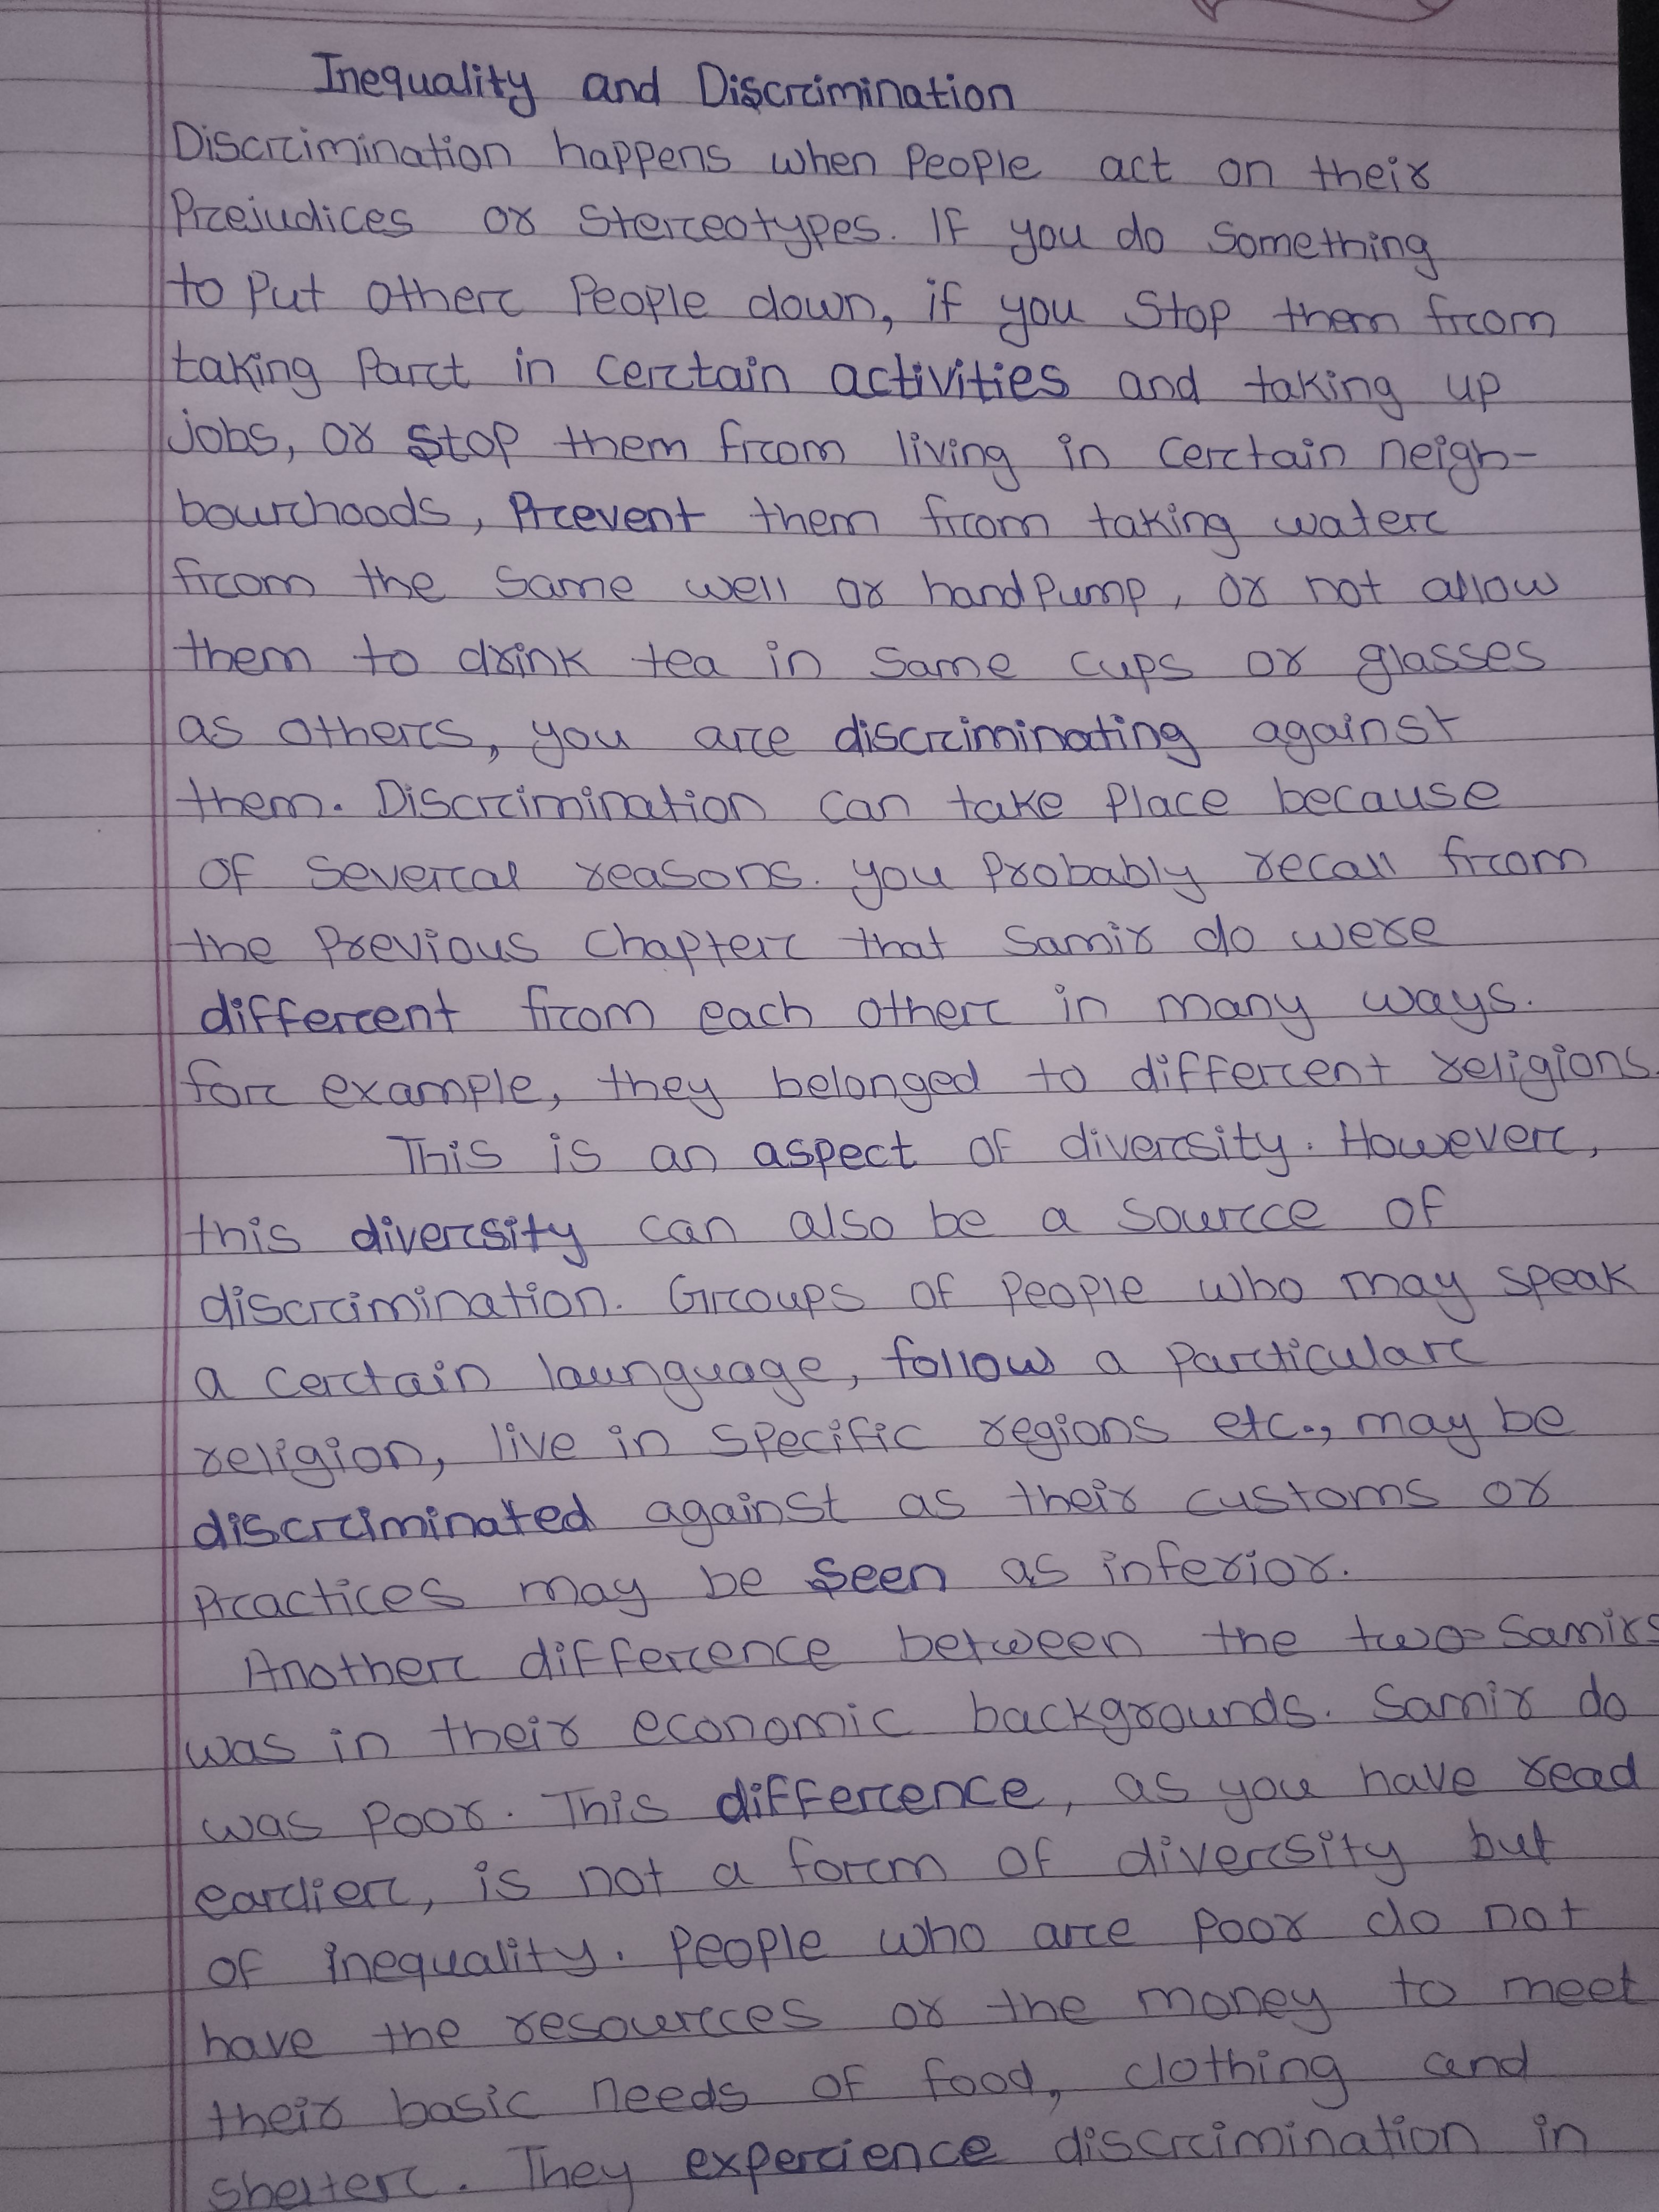 Inequality and Discrimination
Discrimination happens when People act on their
Prejudices or Stereotypes. If you do Something
to Put other People down, if you Stop them from
taking Part in certain activities and taking up
jobs, or stop them from living in certain neigh-
bourhoods, Prevent them from taking water
from the Same well or handPump, or not allow
them to drink tea in Same cups or glasses
as others, you are discriminating against
them. Discrimination can take Place because
of Several reasons. you Probably recall from
the Previous Chapter that Samir do were
different from each other in many ways.
for example, they belonged to different religions.
This is an aspect of diversity. However,
this diversity can also be a source of
discrimination. Groups of People who may speak
a certain launguage, follow a Particular
religion, live in specific regions etc., may be
discriminated against as their customs or
Practices may be Seen as inferior.
Another difference between the two Samirs
was in their economic backgrounds. Samir do
was Poor. This difference, as you have read
eardier, is not a form of diversity but
of inequality. People who are Poor do not
have the resources or the money to meet
their basic needs of food, clothing and
shelter. They experience discrimination in